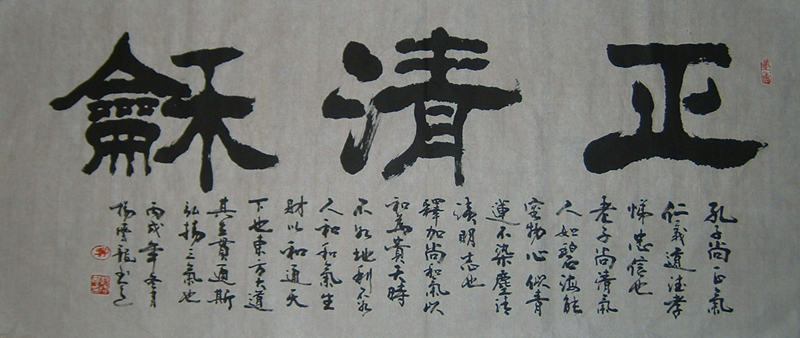 正清龢
孔子尚正氣
仁義道法孝
悌忠信也
老子尚清氣
人如碧海能
容物心似青
蓮不染塵清
淡明志也
釋加尚和氣以
和為貴天時
不如地利不如
人和和氣生
財以和通天
下也東方大道
其在貫通斯
弘揚三氣也
丙戌年冬月
楊龍書